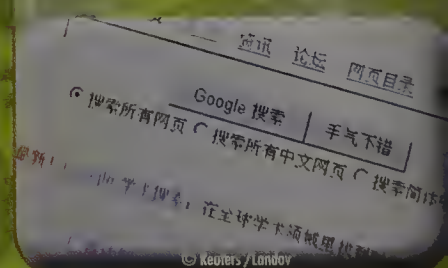 资讯 论坛 网页目录
Google 搜索 手气不错
搜索所有网页 搜索所有中文网页 搜索简体中
最新! 学术搜索: 在全球学术领域里找到
© Reuters / Landov